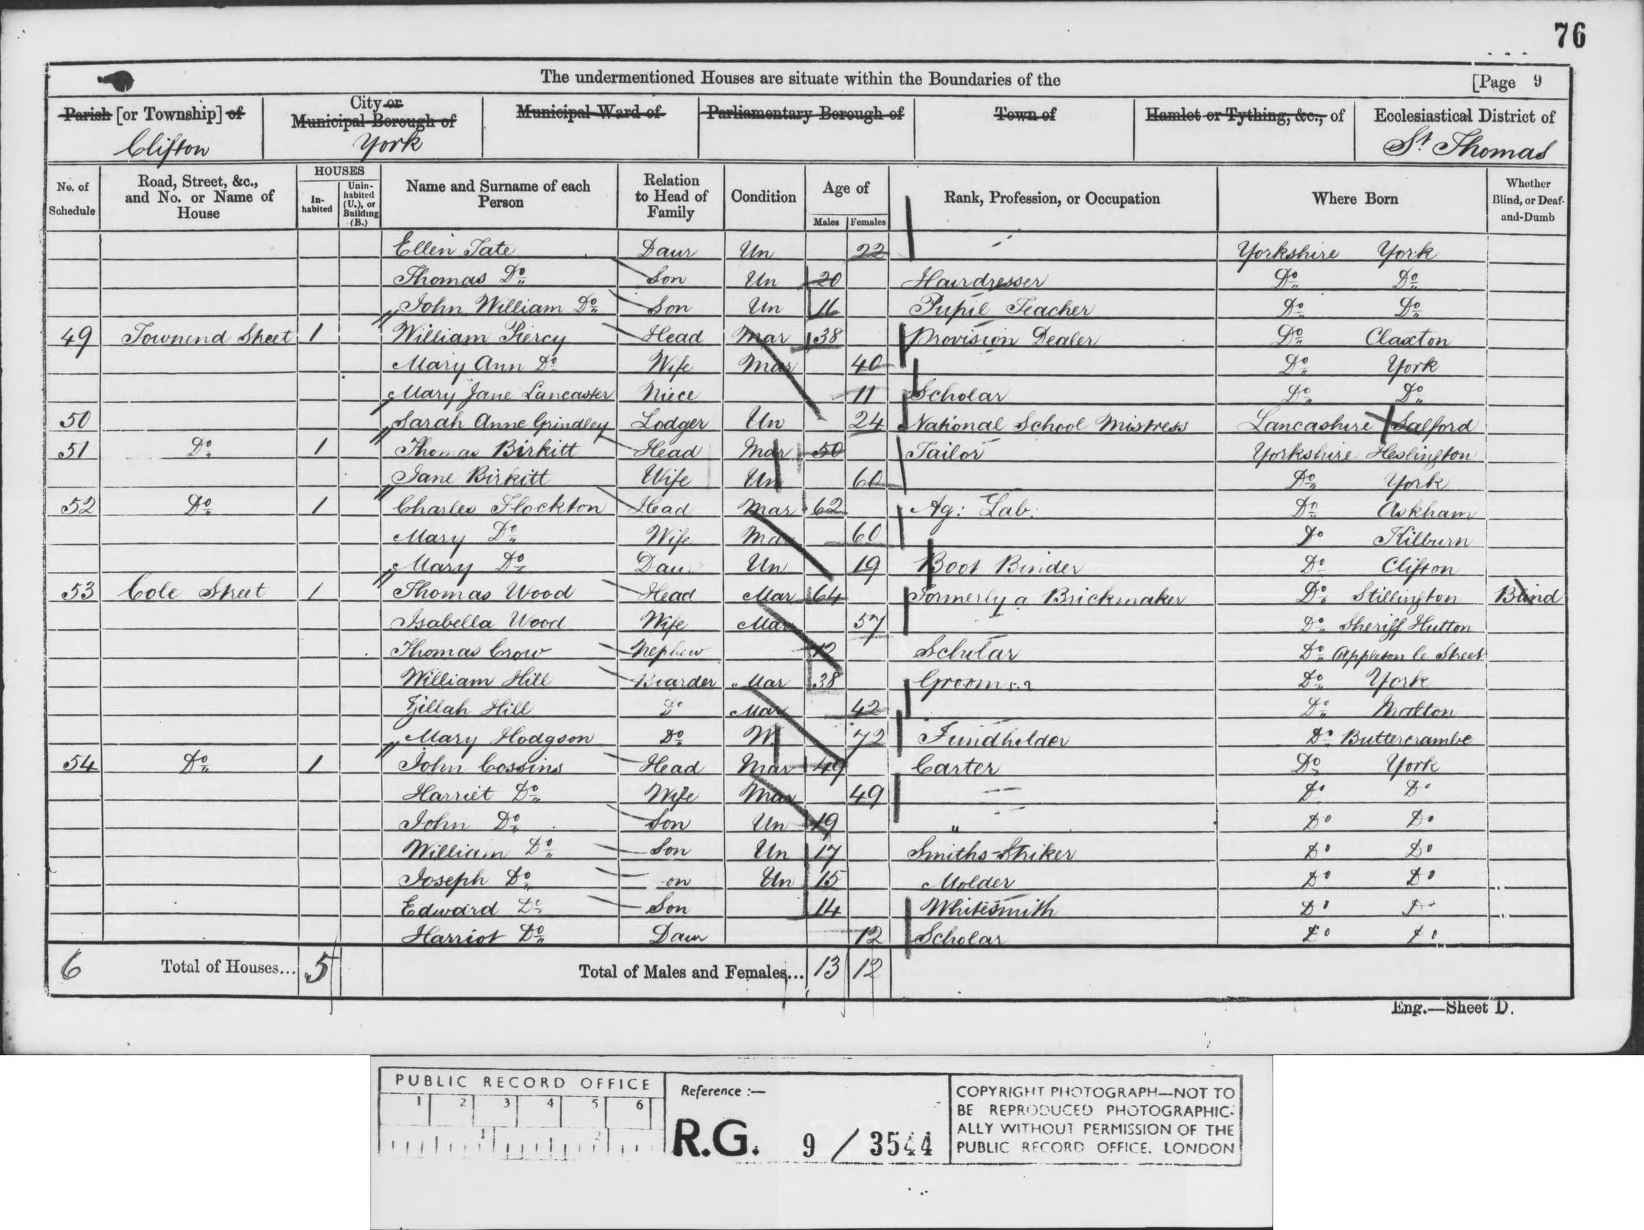 76
The undermentioned Houses are situate within the Boundaries of the [Page 9
Parish [or Township] of City or Municipal Borough of Municipal Ward of Parliamentary Borough of Town of Hamlet or Tything, &c., of Ecclesiastical District of
Clifton York St Thomas
No. of Schedule Road, Street, &c., and No. or Name of House HOUSES Inhabited Uninhabited (U.), or Building (B.) Name and Surname of each Person Relation to Head of Family Condition Age of Males Females Rank, Profession, or Occupation Where Born Whether Blind, or Deaf-and-Dumb
Ellen Tate Daur Un 22 Yorkshire York
Thomas Do Son Un 20 Hairdresser Do Do
John William Do Son Un 16 Pupil Teacher Do Do
49 Townend Street 1 William Head Mar 38 Provision Dealer Do Claxton
Mary Ann Do Wife Mar 40 Do York
Mary Jane Lancaster Niece 11 Scholar Do Do
50 Sarah Anne Grindley Lodger Un 24 National School Mistress Lancashire Salford
51 Do 1 Thomas Birkitt Head Mar 50 Tailor Yorkshire Heslington
Jane Birkitt Wife Un 60 Do York
52 Do 1 Charles Flockton Head Mar 62 Ag: Lab: Do Askham
Mary Do Wife Mar 60 Do Kilburn
Mary Do Daur Un 19 Boot Binder Do Clifton
53 Cole Street 1 Thomas Wood Head Mar 64 Formerly a Brickmaker Do Stillington Blind
Isabella Wood Wife Mar 57 Do Sheriff Hutton
Thomas Crow Nephew 12 Scholar Do Appleton le Street
William Hill Boarder Mar 38 Groom Do York
Zillah Hill Do Mar 42 Do Malton
Mary Hodgson Do W 72 Fundholder Do Buttercrambe
54 Do 1 John Cossins Head Mar 49 Carter Do York
Harriet Do Wife Mar 49 Do Do
John Do Son Un 19 " Do Do
William Do Son Un 17 Smiths Striker Do Do
Joseph Do on Un 15 Molder Do Do
Edward Do Son 14 Whitesmith Do Do
Harriot Do Daur 12 Scholar Do Do
6 Total of Houses... 5 Total of Males and Females... 13 12
Eng.—Sheet D.
PUBLIC RECORD OFFICE
1 2 3 4 5 6
1 2
Reference :—
R.G. 9 / 3544
COPYRIGHT PHOTOGRAPH—NOT TO
BE REPRODUCED PHOTOGRAPHIC-
ALLY WITHOUT PERMISSION OF THE
PUBLIC RECORD OFFICE. LONDON